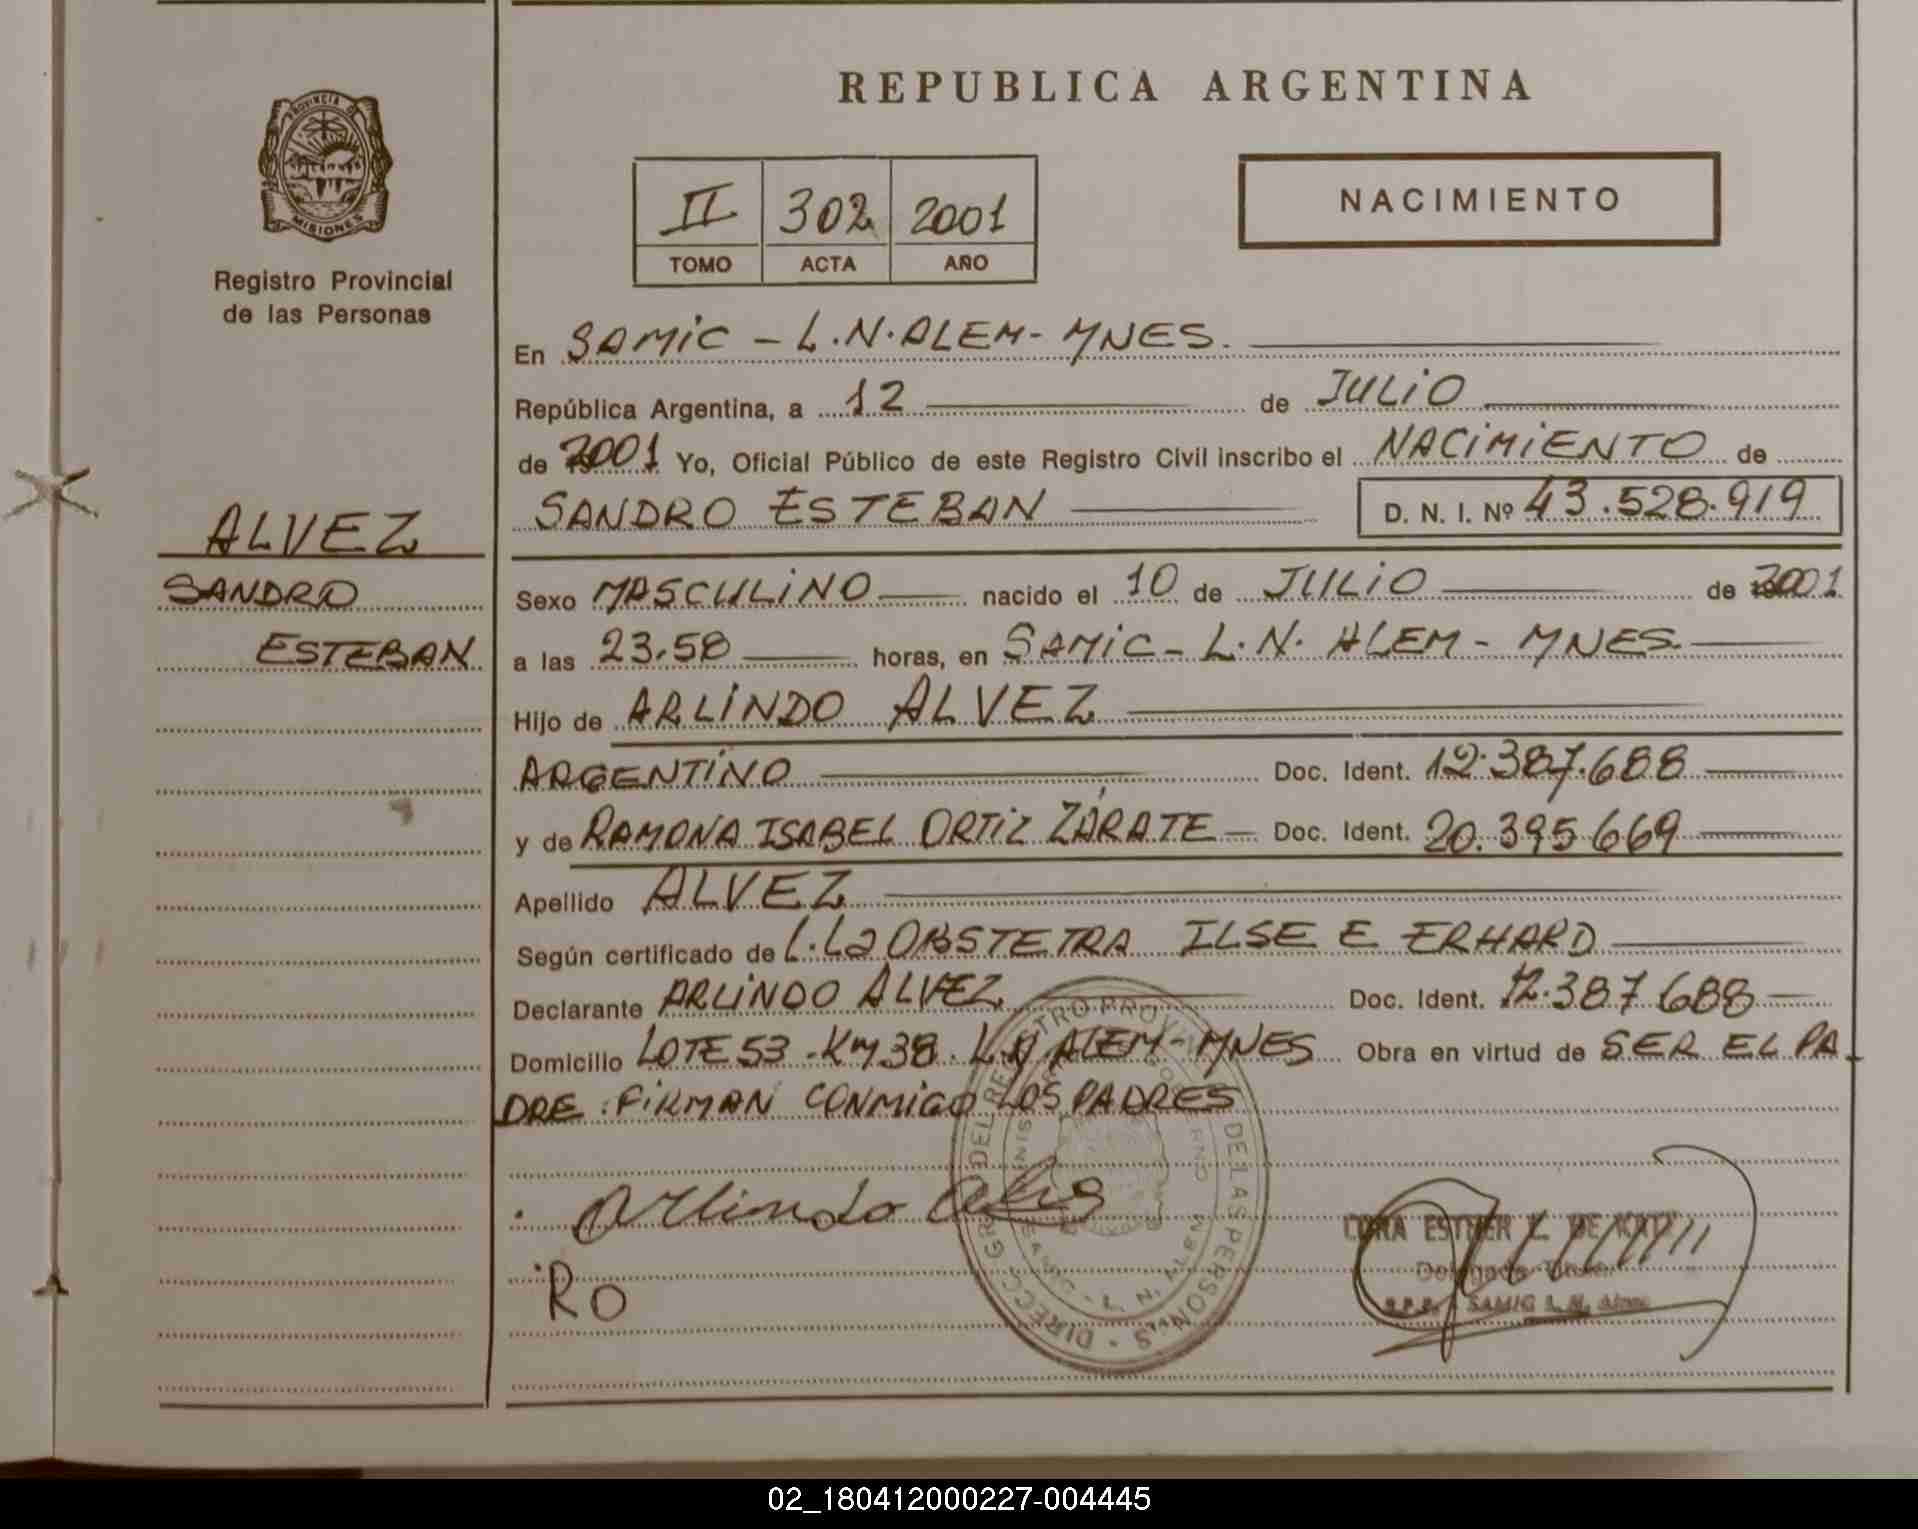 REPUBLICA ARGENTINA
PROVINCIA DE
MISIONES
Registro Provincial
de las Personas
II 302 2001
TOMO ACTA AÑO
NACIMIENTO
En SAMiC - L.N.ALEM - MNES.
República Argentina, a 12 de JULiO
de 2001 Yo, Oficial Público de este Registro Civil inscribo el NACiMiENTO de
SANDRO ESTEBAN D. N. I. Nº 43.528.919
ALVEZ
SANDRO
ESTEBAN
Sexo MASCULiNO nacido el 10 de JULiO de 2001
a las 23.58 horas, en SAMiC - L.N. ALEM - MNES.
Hijo de ARLiNDO ALVEZ
ARGENTiNO Doc. Ident. 12.387.688
y de RAMONA ISABEL ORTiZ ZÁRATE Doc. Ident. 20.395.669
Apellido ALVEZ
Según certificado de OBSTETRA ILSE E ERHARD
Declarante ARLiNDO ALVEZ Doc. Ident. 12.387.688
Domicilio LOTE 53 - Km 38. L.N. ALEM - MNES Obra en virtud de SER EL PA
DRE. FiRMAN CONMIGO LOS PADRES
DIRECC. GRAL. DEL REGISTRO PROVINCIAL DE LAS PERSONAS
SAMIC - L. N. ALEM
Arlindo
RO
ESTHER
SAMIC L. N. Alem
02_180412000227-004445